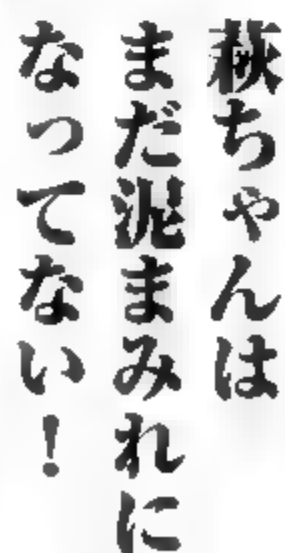 萩ちゃんは
まだ泥まみれに
なってない！